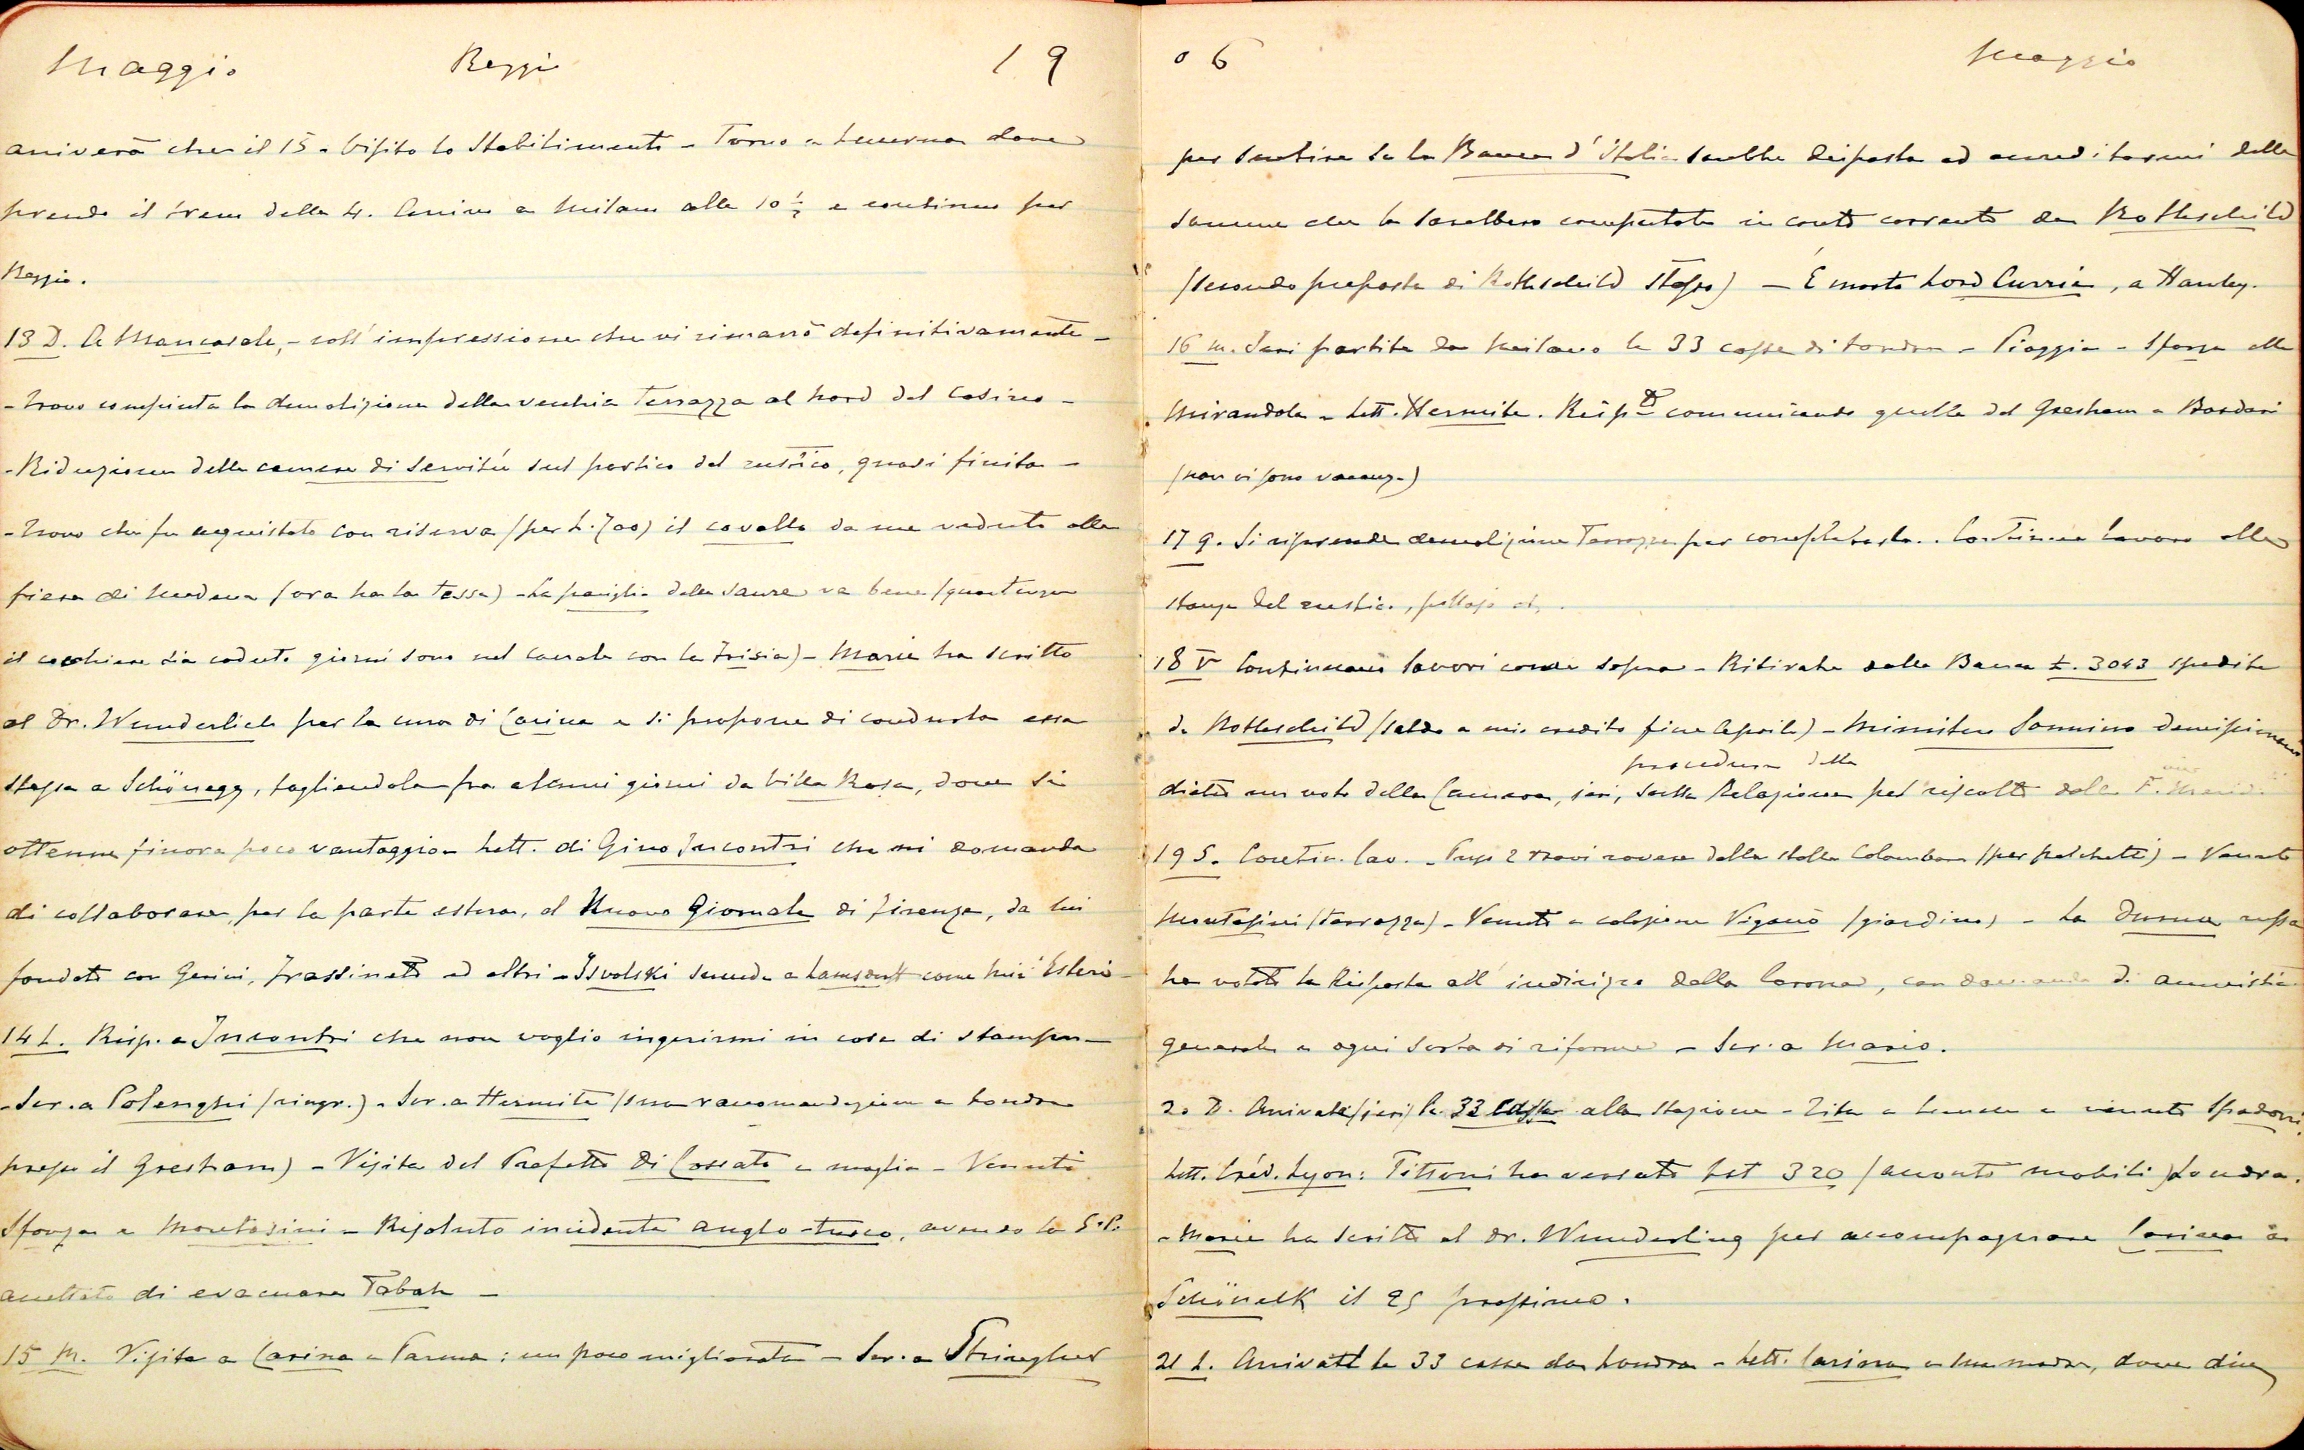 Maggio Reggio 19
arriverà che il 15 - Visito lo Stabilimento - Torno a Lucerna dove
prendo il treno delle 4. Arrivo a Milano alle 10 ½ e continuo per
Reggio.
13 D. A Mancasale, - coll' impressione che vi rimarrò definitivamente -
- Trovo compiuta la demolizione della vecchia Terrazza al nord del Casino -
- Riduzione delle camere di servitù sul portico del rustico, quasi finita -
- Trovo che fu acquistato con riserva (per L. 700) il cavallo da me veduto alla
fiera di Modena (ora ha la tosse) - La pariglia delle saure va bene (quantunque
il cocchiere sia caduto giorni sono nel canale con la Frisia) - Marie ha scritto
al Dr. Wunderlich per la cura di Carina e si propone di condurla essa
stessa a Schönegg, togliendola fra alcuni giorni da Villa Rosa, dove si
ottenne finora poco vantaggio - Lett. di Gino Incontri che mi domanda
di collaborare, per la parte estera, al Nuovo Giornale di Firenze, da lui
fondato con Gerini, Frassineto ed altri - Isvolski succede a Lamsdorff come Min. Esteri -
14 L. Risp. a Incontri che non voglio ingerirmi in cose di stampa -
- Scr. a Polenghi (ringr.) - Scr. a Hermite (sua raccomandazione a Londra
presso il Gresham) - Visita del Prefetto Di Cossato e moglie - Venuti
Sforza e Montasini - Risoluto incidente anglo-turco, avendo la S. P.
accettato di evacuare Tabah -
15 M. Visita a Carina a Parma: un poco migliorata - Scr. a Stringher
06 Maggio
per sentire se la Banca d'Italia sarebbe disposta ad accreditarmi delle
somme che le sarebbero computate in conto corrente da Rothschild
(secondo proposta di Rothschild stesso) - È morto Lord Currie, a Hawley.
16 M. Ieri partite da Milano le 33 casse di Londra - Pioggia - Sforza alla
Mirandola - Lett. Hermite. Risp. comunicando quella del Gresham a Bordari
(non vi sono vacanze)
17 G. Si riprende demolizione Terrazza per completarla. Continua lavoro alle
stanze del rustico, pollajo et.
18 V Continuano lavori come sopra - Ritirate dalla Banca £. 3043 spedite
da Rothschild (saldo a mio credito fine Aprile) - Ministero Sonnino dimissionario
procedura della
dietro un voto della Camera, ieri, sulla Relazione pel riscatto delle F. Merid.
19 S. Contin. lav. - 2 travi rovere della stalla Colombara (per palchetti) - Venuto
Montasini (terrazza) - Venuto a colazione Viganò (giardino) - La Duma russa
ha votato la Risposta all' indirizzo della Corona, con domanda di amnistia
generale e ogni sorta di riforme - Scr. a Mario.
20 D. Arrivate (ieri) le 33 casse alla stazione - Zita a e venuto Spadoni.
Lett. Créd. Lyon: Tittoni ha versato Lst 320 (acconto mobili) Londra.
- Marie ha scritto al Dr. Wunderling per accompagnare Carina a
Schönelk il 25 prossimo.
21 L. Arrivate le 33 casse da Londra - Lett. Carina a sua madre, dove dice